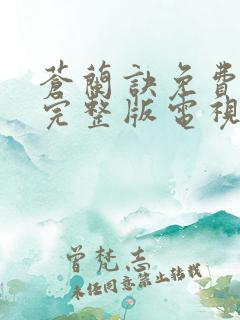 蒼蘭訣免費
完整版電視
曾梵志
未經同意禁止轉載